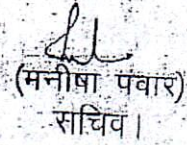 (मनीषा पंवार)
सचिव।